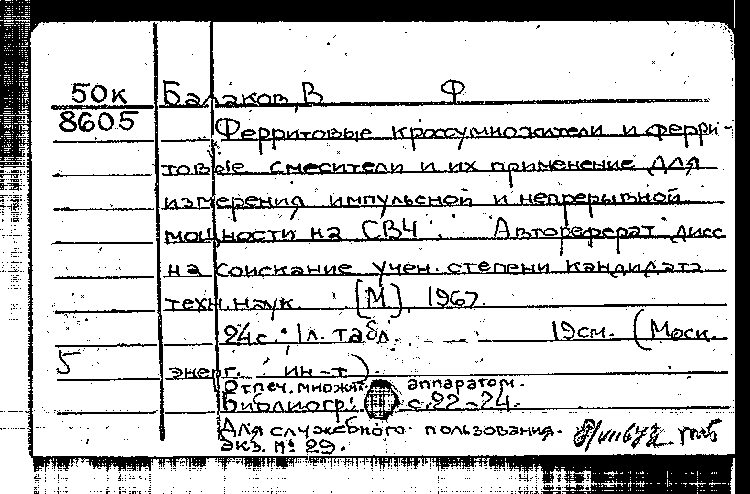 50к Балаков, В Ф
8605 Ферритовые кроссумножители и ферри-
товые смесители и их применение для
измерения импульсной и непрерывной
мощности на СВЧ. Автореферат дисс
на соискание учен. степени кандидата
техн. наук. [М], 1967.
24с.; 1л. табл. 19см. (Моск.
5 энерг. ин-т)
Отпеч. множит. аппаратом.
Библиогр.: с.22-24.
Для служебного пользования.
экз. № 29.